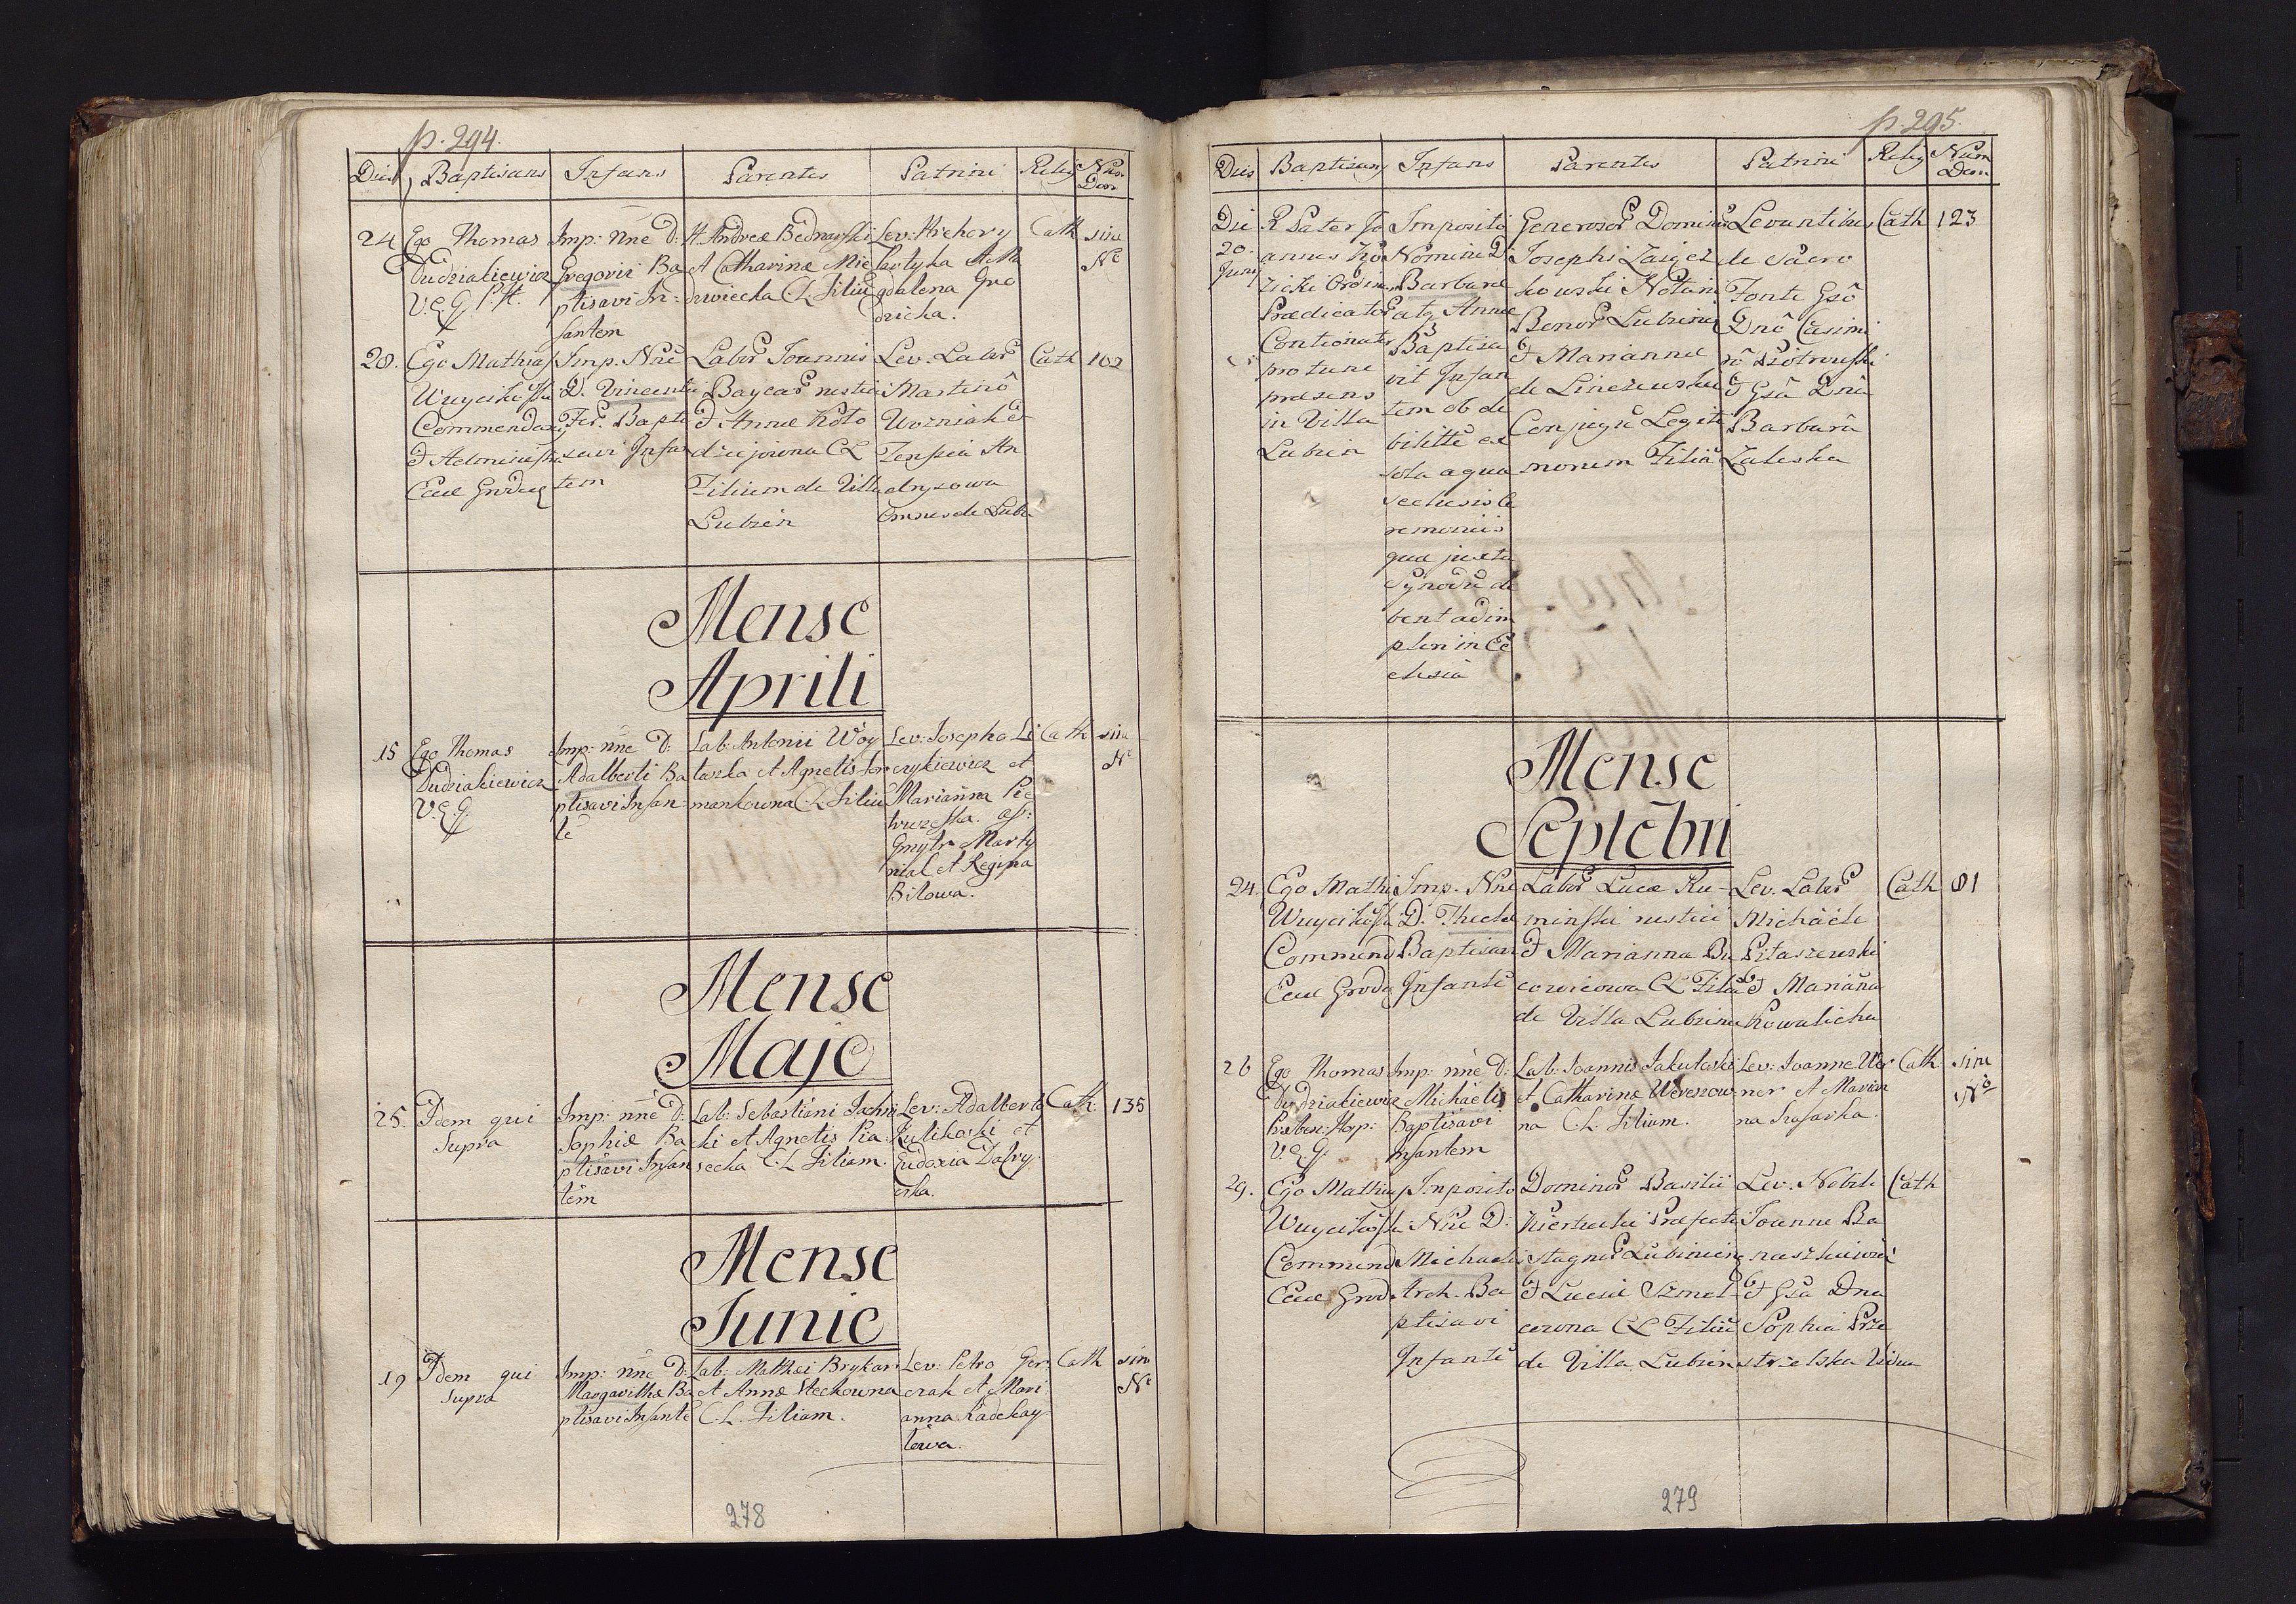 p. 294.
Dies Baptisans Infans Parentes Patrini Relig Nus Dom
24 Ego Thomas Dudziakiewicz V.E.G. P.H.
Imp: nn̄e D: Gregorii Ba
ptisavi In=
fantem
H. Andreæ Bednarski
et Catharinæ Mie
dzwiecka C.L. filiū
Lev: Hrehory
Martyka et Ma
gdalena Gro
dzicka.
Cath
sine
Nᵒ
28. Ego Mathias
Commendari
Imp. Nn̄e
D. Vincentii
Fer. Bapti
savi Infan
tem
Labor Joannis
Baycar rustici
et Annæ Koło
dziejowna CL
Filium de Villa
Lubzin
Lev. Labor
Martinô
Wozniak et
An
drysowa
Omnes de Lubz
Cath
102
Mense
Aprili
15 Ego Thomas
Dudziakiewicz
V.E.G.
Imp: nn̄e D:
Adalberti Ba
ptisavi Infan=
tē
Lab: Antonii Woy
taszka et Agnetis For
mankowna C.L. filiū
Lev: Josepho Li
crykiewicz et
Marianna Pie
truzeska. ass:
Gmytr Marty
niak et Regina
Bilowa.
Cath
sine
Nᵒ
Mense
Majo
25. Idem qui
Supra
Imp: nn̄e D:
Sophiæ Ba
ptisavi Infan
tem
Lab: Sebastiani Jachni
cki et Agnetis Pia
secka C.L. filiam.
Lev: Adalberto
Kulikoski et
Eudoxia Dobry
Cath.
135
Mense
Junio
19 Idem qui
Supra
Imp: nn̄e D:
Margarithæ Ba
ptisavi Infantē
Lab: Mathæi Brykar
et Annæ Steckowna
C.L. filiam.
Lev: Petro Gor
czak et Mari
anna Radekay
lowa.
Cath
sine
Nᵒ
278
p. 295.
Dies Baptisans Infans Parentes Patrini Relig Num Dom
Die
20
Junii
R Pater Jo
annes Ko
zicki Ordin
Prædicator
Contionator
pro tunc
præsens
in Villa
Lubzin
Imposito
Nomine D.
Barbaræ
atq Annæ
Baptiza
vit Infan
tem ob de
bilitē ex
sola aqua
seclusis Ce
remoniis
quæ juxta
Synodū de
bent adim
pleri in Ec
clesia
Generosor Dominor
Josephi
kowski
Bonor Lubzin
et Mariannæ
de
Conjugū Legiti
morum Filiā
Levantibus
de Sacro
Fonte Gsô
Dnô Casimi
rô Piotrowski
et Gsâ Dnâ
Barbarâ
Zaleska
Cath
123
Mense
Septēbri
24. Ego Mathi
Commend
Eccl Grod
Imp. Nn̄e
D. Theclæ
Baptisavi
Infantē
Labor Lucæ Ku-
minski rustici
et Marianna Bu
cowicowa CL Filiā
de Villa Lubzin
Lev. Labor
Michaele
Ptaszenski
et Mariāna
Kowalicha
Cath
81
26 Ego Thomas
Dudziakiewicz
Præben: Hosp:
V.E.G.
Imp: nn̄e D:
Michaëlis
Baptisavi
Infantem
Lab: Joannis Jakuboski
et Catharinæ Wereszow
na C.L. filium.
Lev: Joanne Wer
ner et Marian
na Szafarka.
Cath
sine
Nᵒ
29. Ego Mathias
Commend
Eccl Grod
Imposito
Nn̄e D:
Michaelis
Arch. Ba
ptisavi
Infantē
Dominor Basilii
Præfecti
stagnor Lubzinien
et Luciæ Szmel
cowna CL Filiū
de Villa Lubzin
Lev. Nobile
Joanne Ba
naszkiewicz
et Gsâ Dna
Sophia Prze
strzelska Vidua
Cath
279